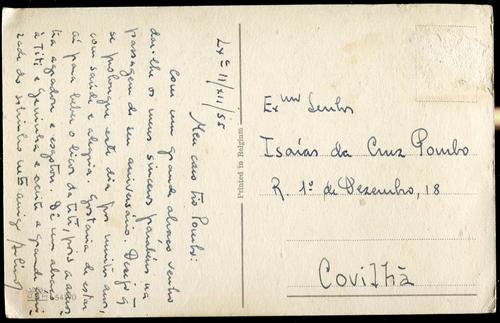 Lxª 11/XII/55
Meu caro tio Pombo:
Com um grande abraço venho
dar-lhe os meus sinceros parabéns na
passagem do seu aniversário. Desejo q
se prolongue este dia por muitos anos,
com saúde e alegria. Gostaria de estar
aí para beber o licor da titi, pois a
tia agradou e esgotou. Dê um abraço
à Titi e Geninha e aceite a grande
do sobrinho muito amigo
Printed in Belgium
Exmº Senhor
Isaías da Cruz Pombo
R. 1º de Dezembro, 18
Covilhã